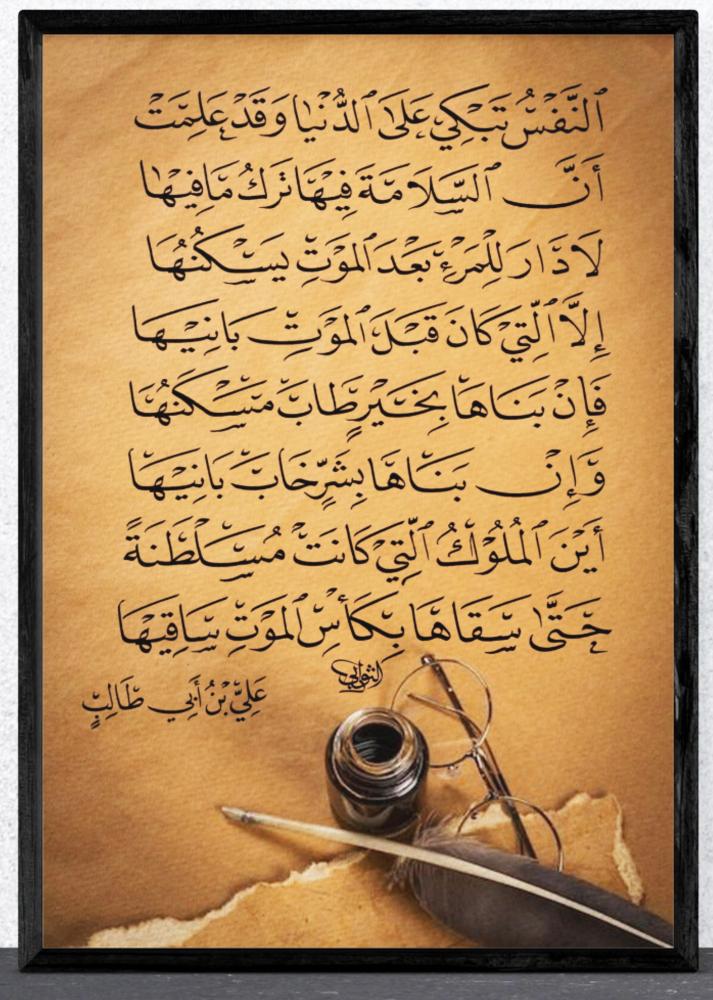 ٱلنَّفْسُ تَبْكِي عَلَىٰ ٱلدُّنْيَا وَقَدْ عَلِمَتْ
أَنَّ ٱلسَّلَامَةَ فِيهَا تَرْكُ مَا فِيهَا
لَا دَارَ لِلْمَرْءِ بَعْدَ ٱلْمَوْتِ يَسْكُنُهَا
إِلَّا ٱلَّتِي كَانَ قَبْلَ ٱلْمَوْتِ بَانِيهَا
فَإِنْ بَنَاهَا بِخَيْرٍ طَابَ مَسْكَنُهَا
وَإِنْ بَنَاهَا بِشَرٍّ خَابَ بَانِيهَا
أَيْنَ ٱلْمُلُوكُ ٱلَّتِي كَانَتْ مُسَلْطَنَةً
حَتَّىٰ سَقَاهَا بِكَأْسِ ٱلْمَوْتِ سَاقِيهَا
عَلِيُّ بْنُ أَبِي طَالِبٍ